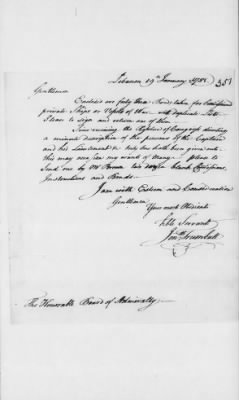 Lebanon 19th January 1781
351
Gentlemen
Enclosed are forty three Bonds taken for Commissioned
private Ships or Vessels of War with duplicate Lists
Please to sign and return one of them
Since receiving the Resolve of Congress directing
a minute description of the persons of the Captain
and his Lieutenant &c only one hath been given into
this may us one month & many. Please to
Send me by Mr Brown two dozen blank Commissions
Instructions and Bonds.
I am with Esteem and Consideration
Gentlemen
Your most Obedient
hble Servant
Jonth Trumbull
The Honorable Board of Admiralty